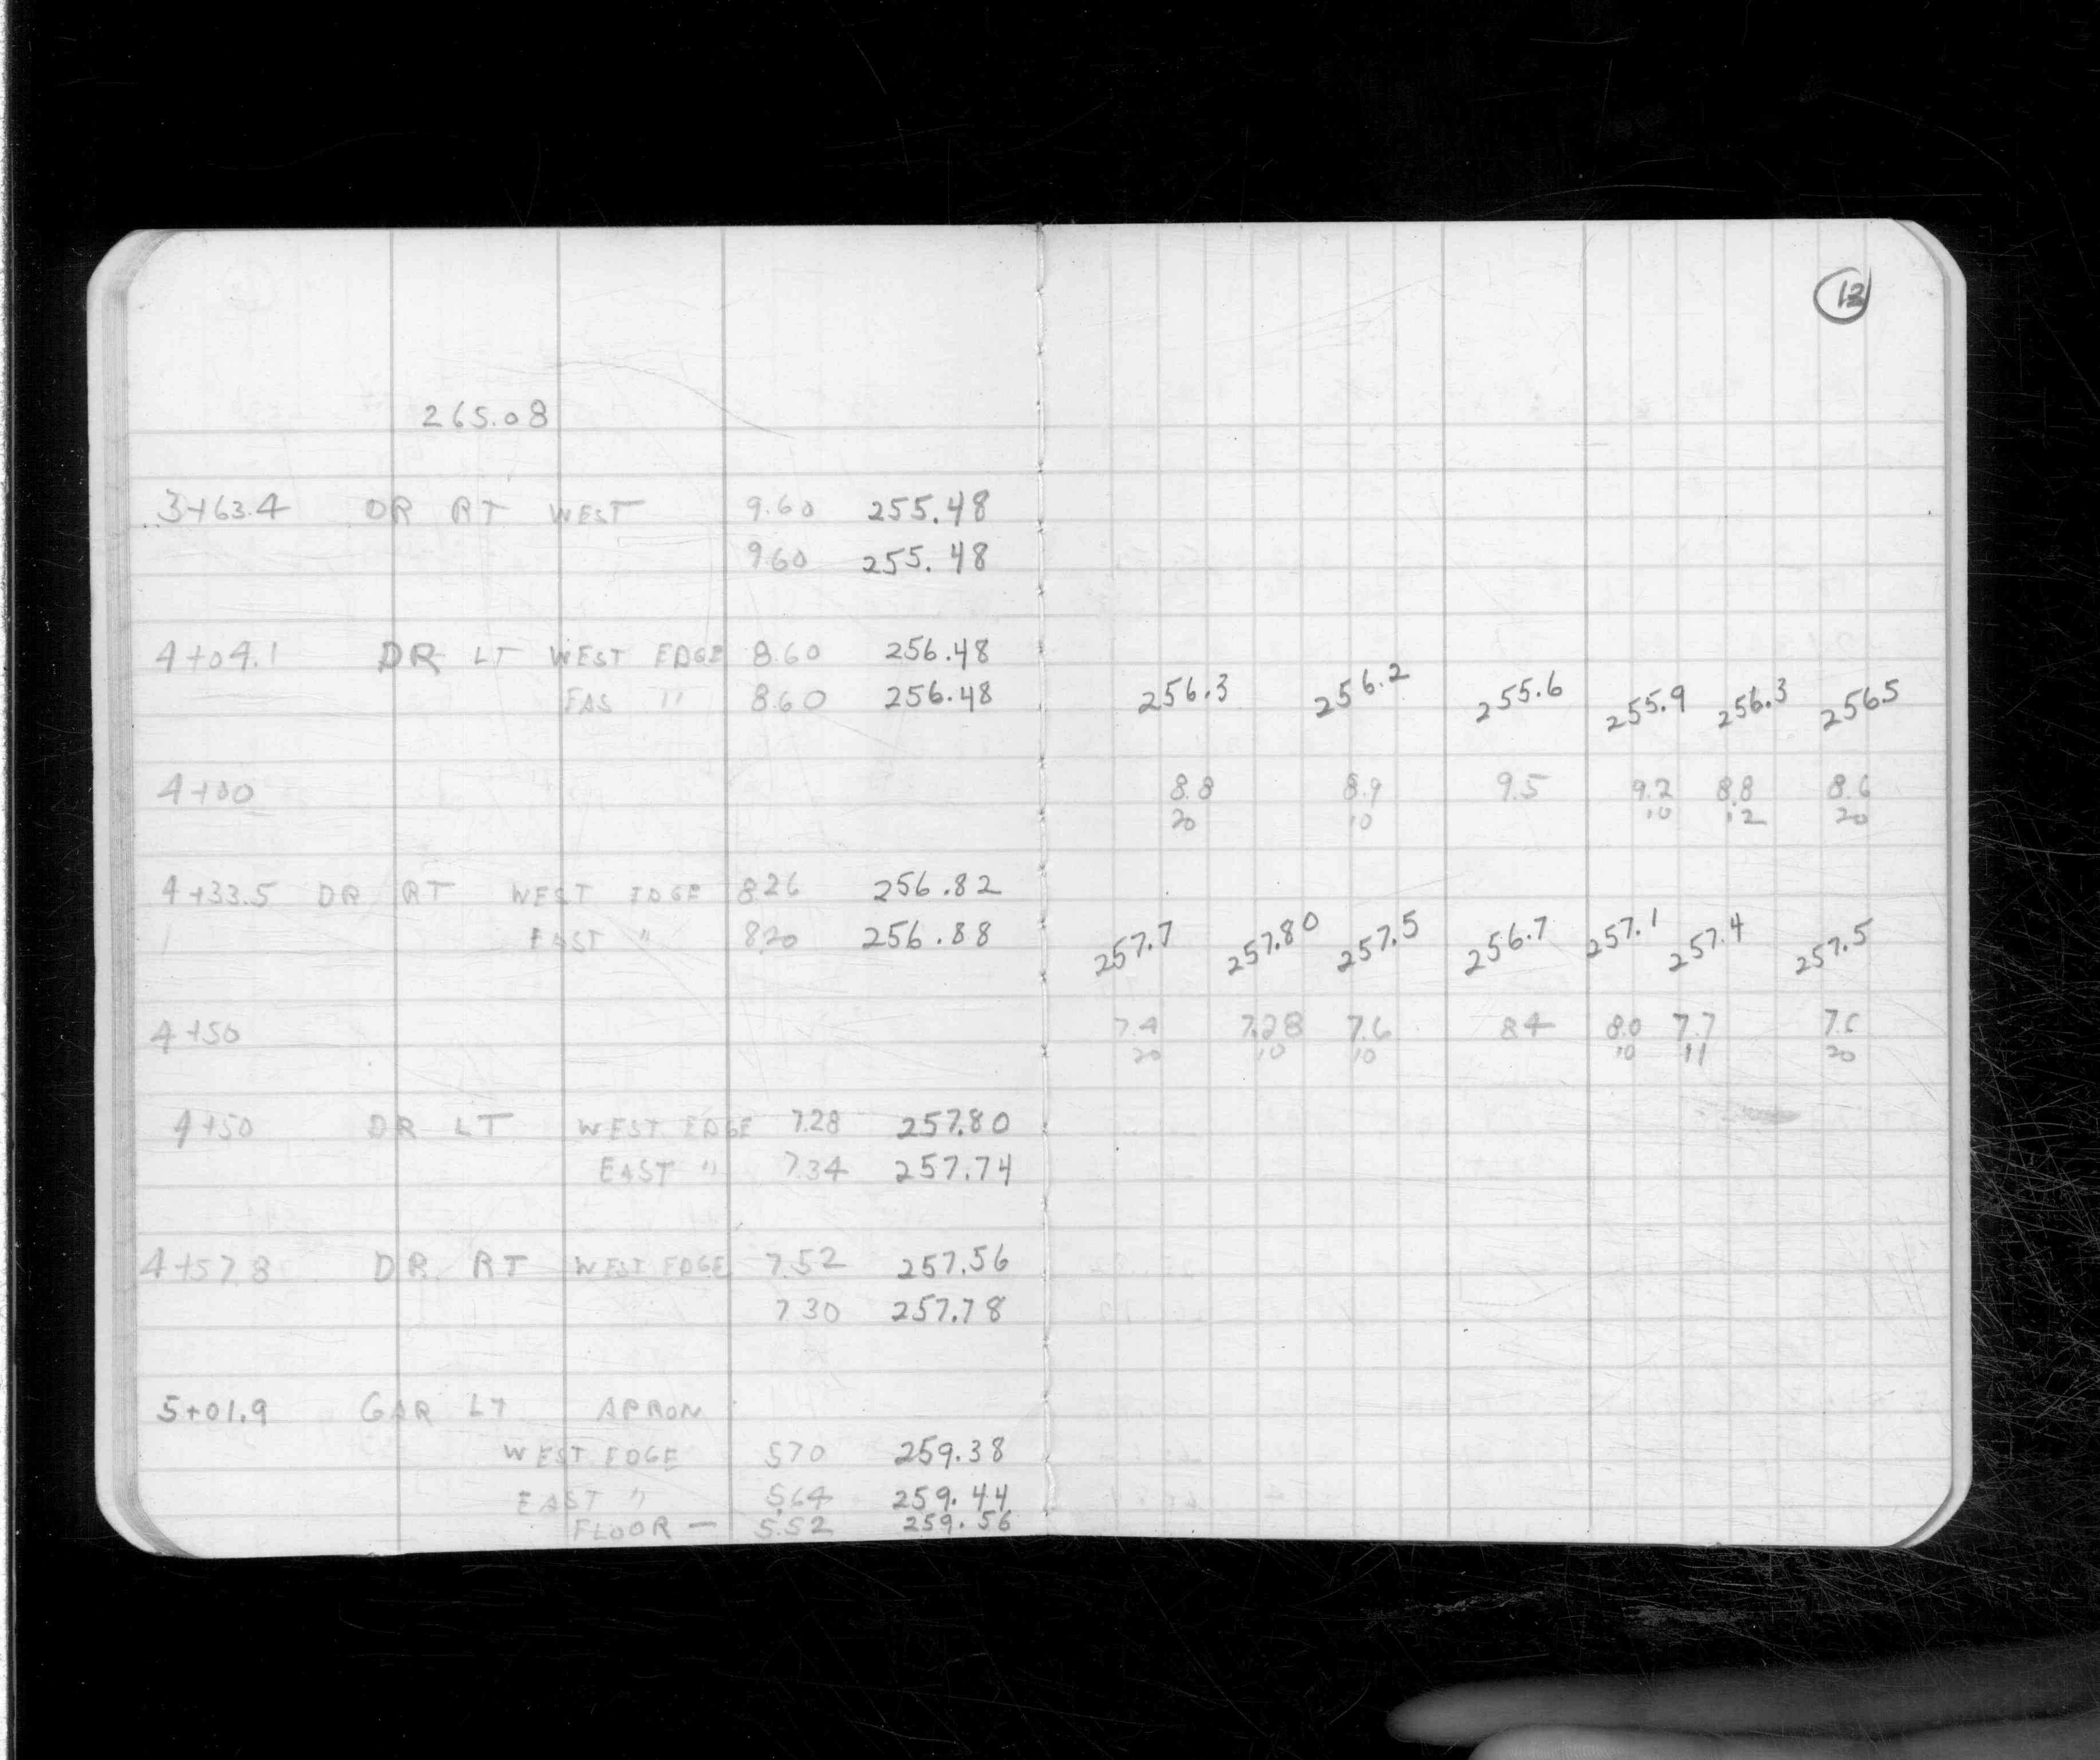 13
265.08
3+63.4 DR RT WEST 9.60 255.48
9.60 255.48
4+04.1 DR LT WEST EDGE 8.60 256.48
EAS " 8.60 256.48
256.3 256.2 255.6 255.9 256.3 256.5
4+00 8.8 8.9 9.5 9.2 8.8 8.6
20 10 10 12 20
4+33.5 DR RT WEST EDGE 8.26 256.82
EAST " 8.20 256.88
257.7 257.80 257.5 256.7 257.1 257.4 257.5
4+50 7.4 7.28 7.6 8.4 8.0 7.7 7.6
20 10 10 10 11 20
4+50 DR LT WEST EDGE 7.28 257.80
EAST " 7.34 257.74
4+57.8 DR RT WEST EDGE 7.52 257.56
7.30 257.78
5+01.9 GAR LT APRON
WEST EDGE 5.70 259.38
EAST " 5.64 259.44
FLOOR — 5.52 259.56